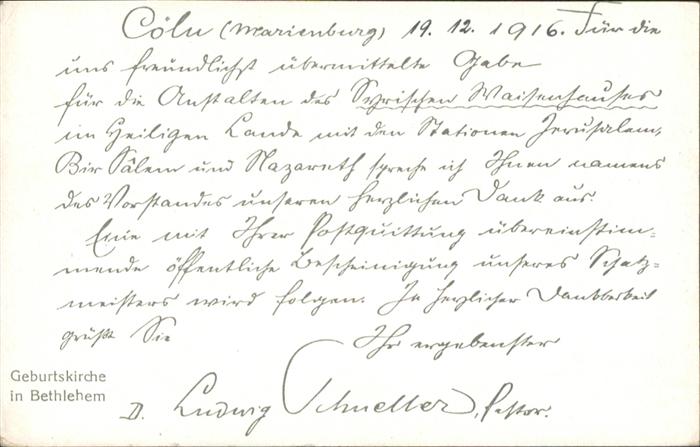 Cöln (Marienburg) 19. 12. 1916. Für die
uns freundlichst übermittelte Gabe
für die Anstalten des Syrischen Waisenhauses
im Heiligen Lande mit den Stationen Jerusalem,
Bir Sâlem und Nazareth spreche ich Ihnen namens
des Vorstandes unseren herzlichen Dank aus.
Eine mit Ihrer Postquittung übereinstim-
mende öffentliche Bescheinigung unseres Schatz-
meisters wird folgen. In herzlicher Dankbarkeit
grüßt Sie Ihr ergebenster
D. Ludwig Schneller, Pastor.
Geburtskirche
in Bethlehem